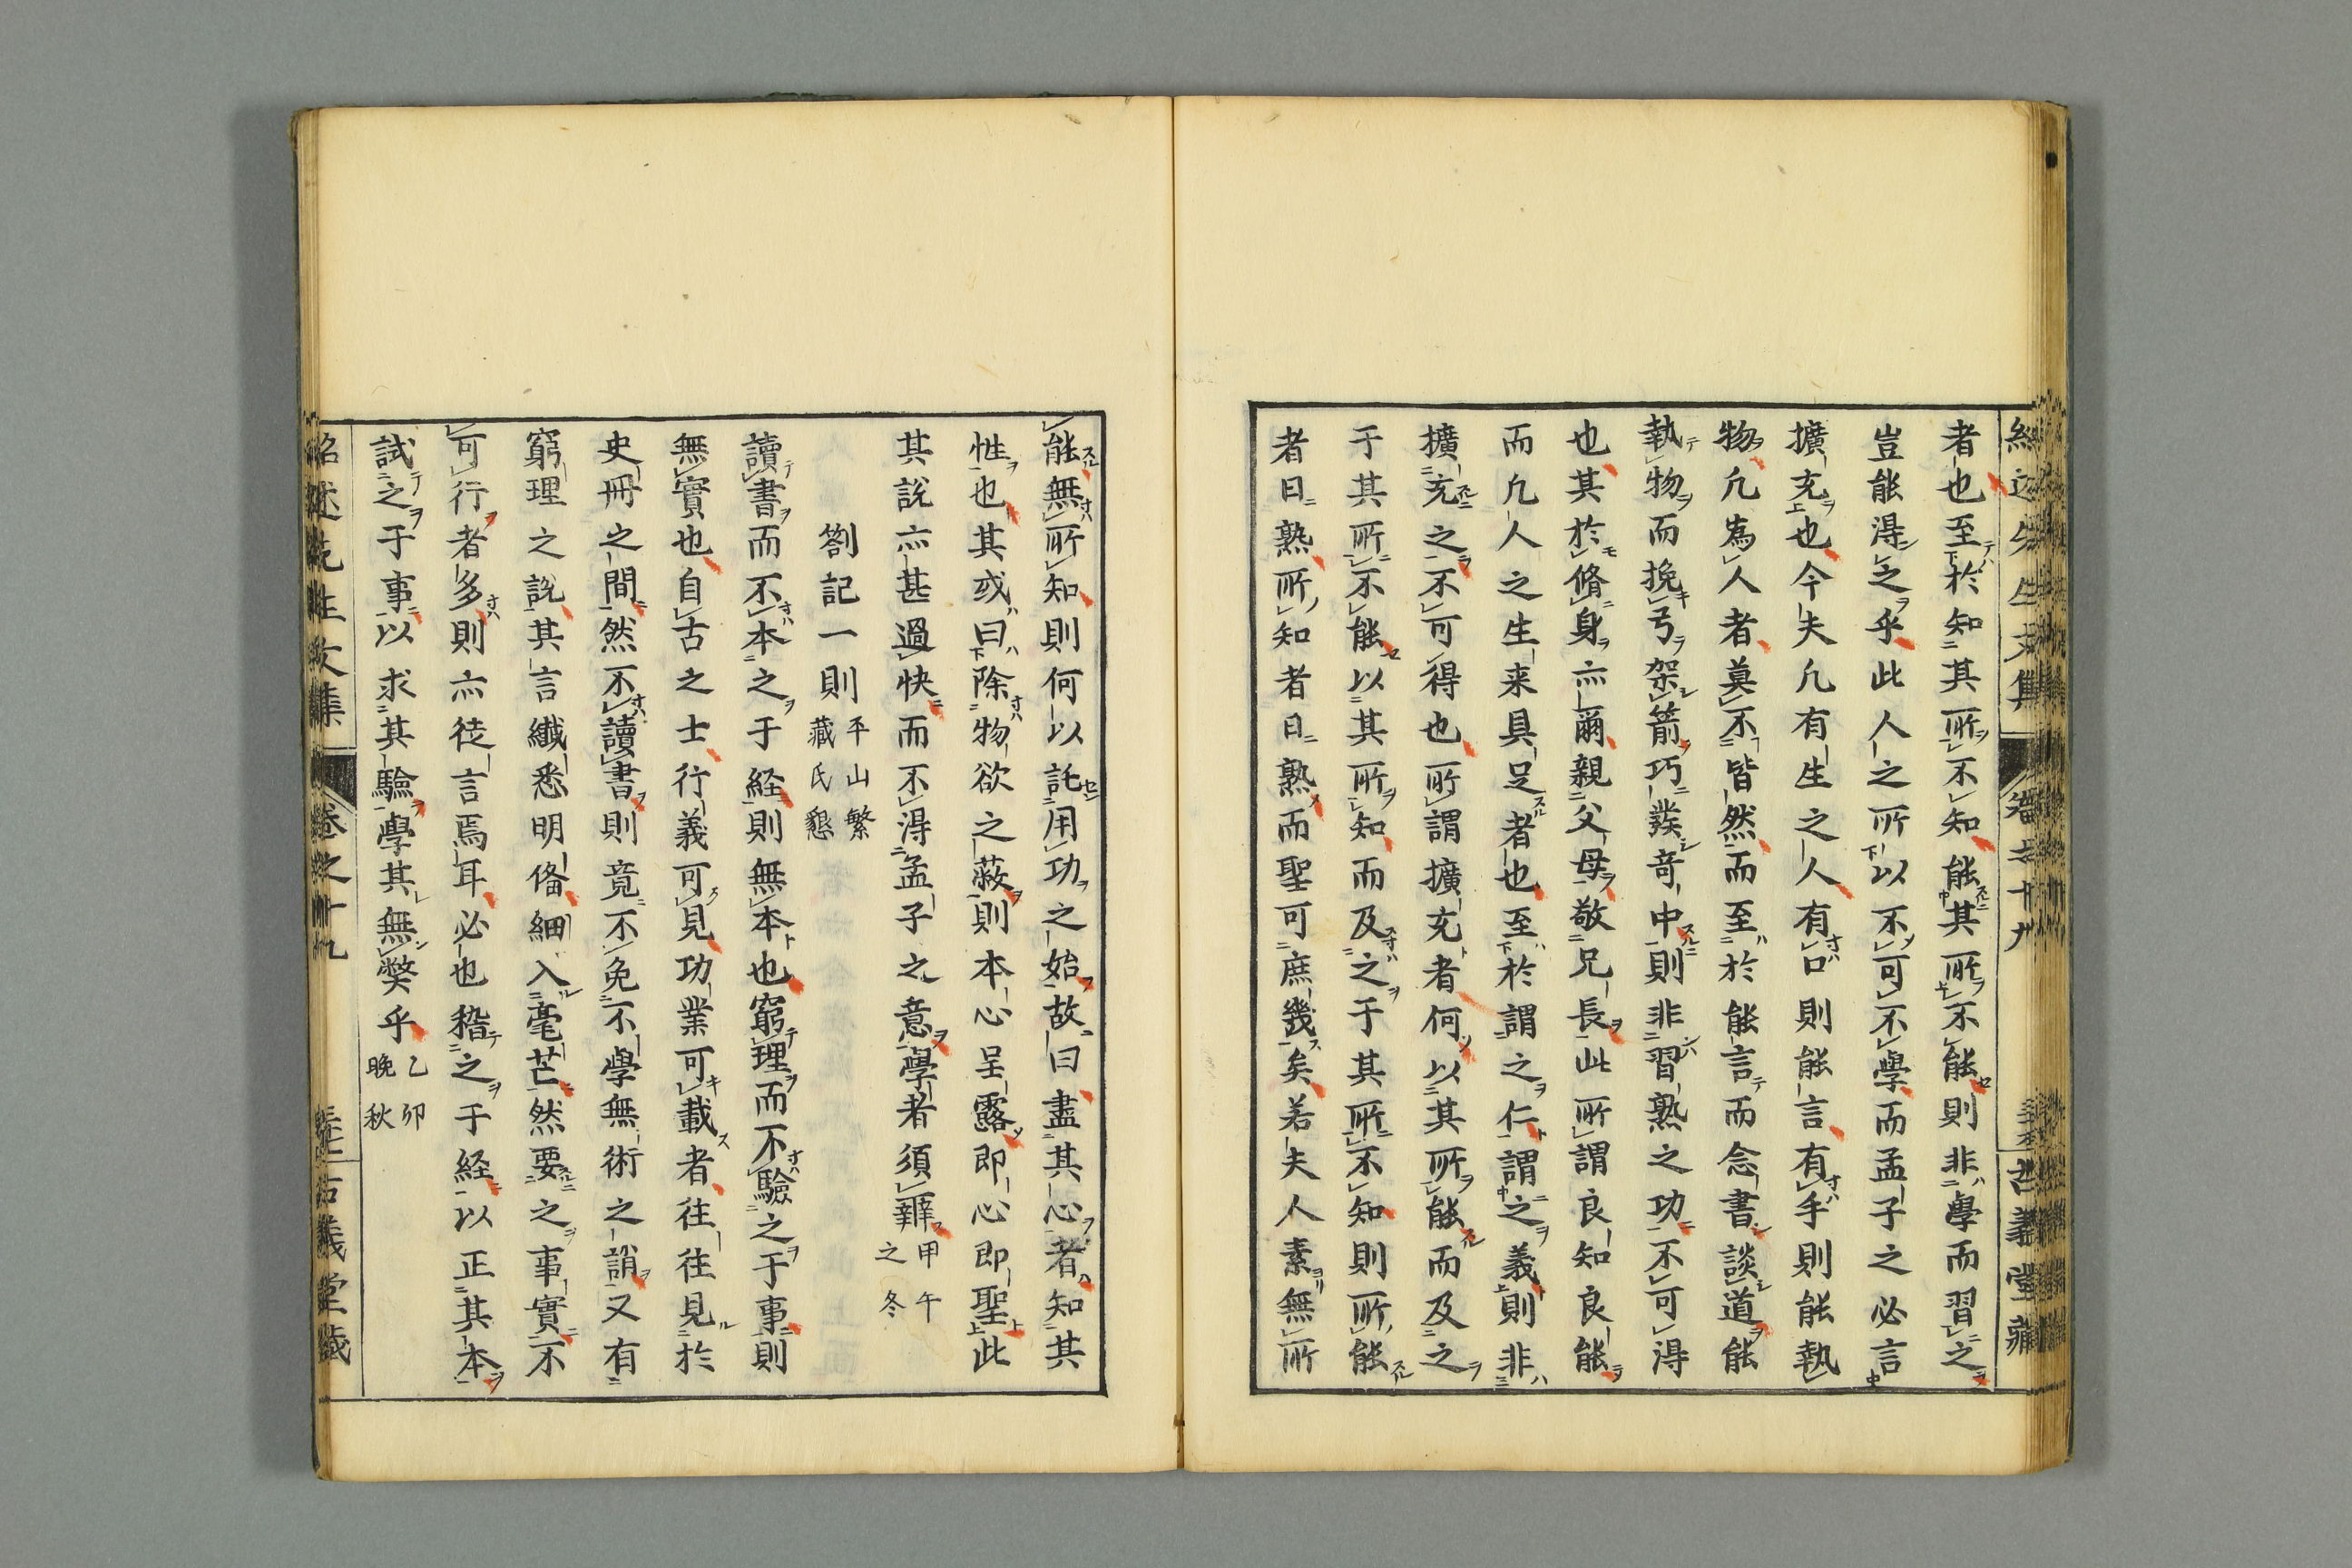 者也至於知其所不知能其所不能則非學而習之
豈能得之乎此人之所以不可不學而孟子之必言
擴充也今夫凡有生之人有口則能言有手則能執
物凡爲人者莫不皆然而至於能言而念書談道能
執物而挽弓架箭巧發奇中則非習熟之功不可得
也其於脩身亦爾親父母敬兄長此所謂良知良能
而凡人之生来具足者也至於謂之仁謂之義則非
擴充之不可得也所謂擴充者何以其所能而及之
于其所不能以其所知而及之于其所不知則所能
者日熟所知者日熟而聖可庶幾矣若夫人素無所
能無所知則何以託用功之始故曰盡其心者知其
性也其或曰除物欲之蔽則本心呈露即心即聖此
其説亦甚過快而不得孟子之意學者須辨 甲午之冬
劄記一則 平山繁藏氏懇
讀書而不本之于経則無本也窮理而不驗之于事則
無實也自古之士行義可見功業可載者往往見於
史冊之間然不讀書則竟不免不學無術之誚又有
窮理之説其言纖悉明俻細入毫芒然要之事實不
可行者多則亦徒言焉耳必也稽之于経以正其本
試之于事以求其驗學其無獘乎 乙卯晩秋
紹述先生文集 卷之十九 古義堂藏